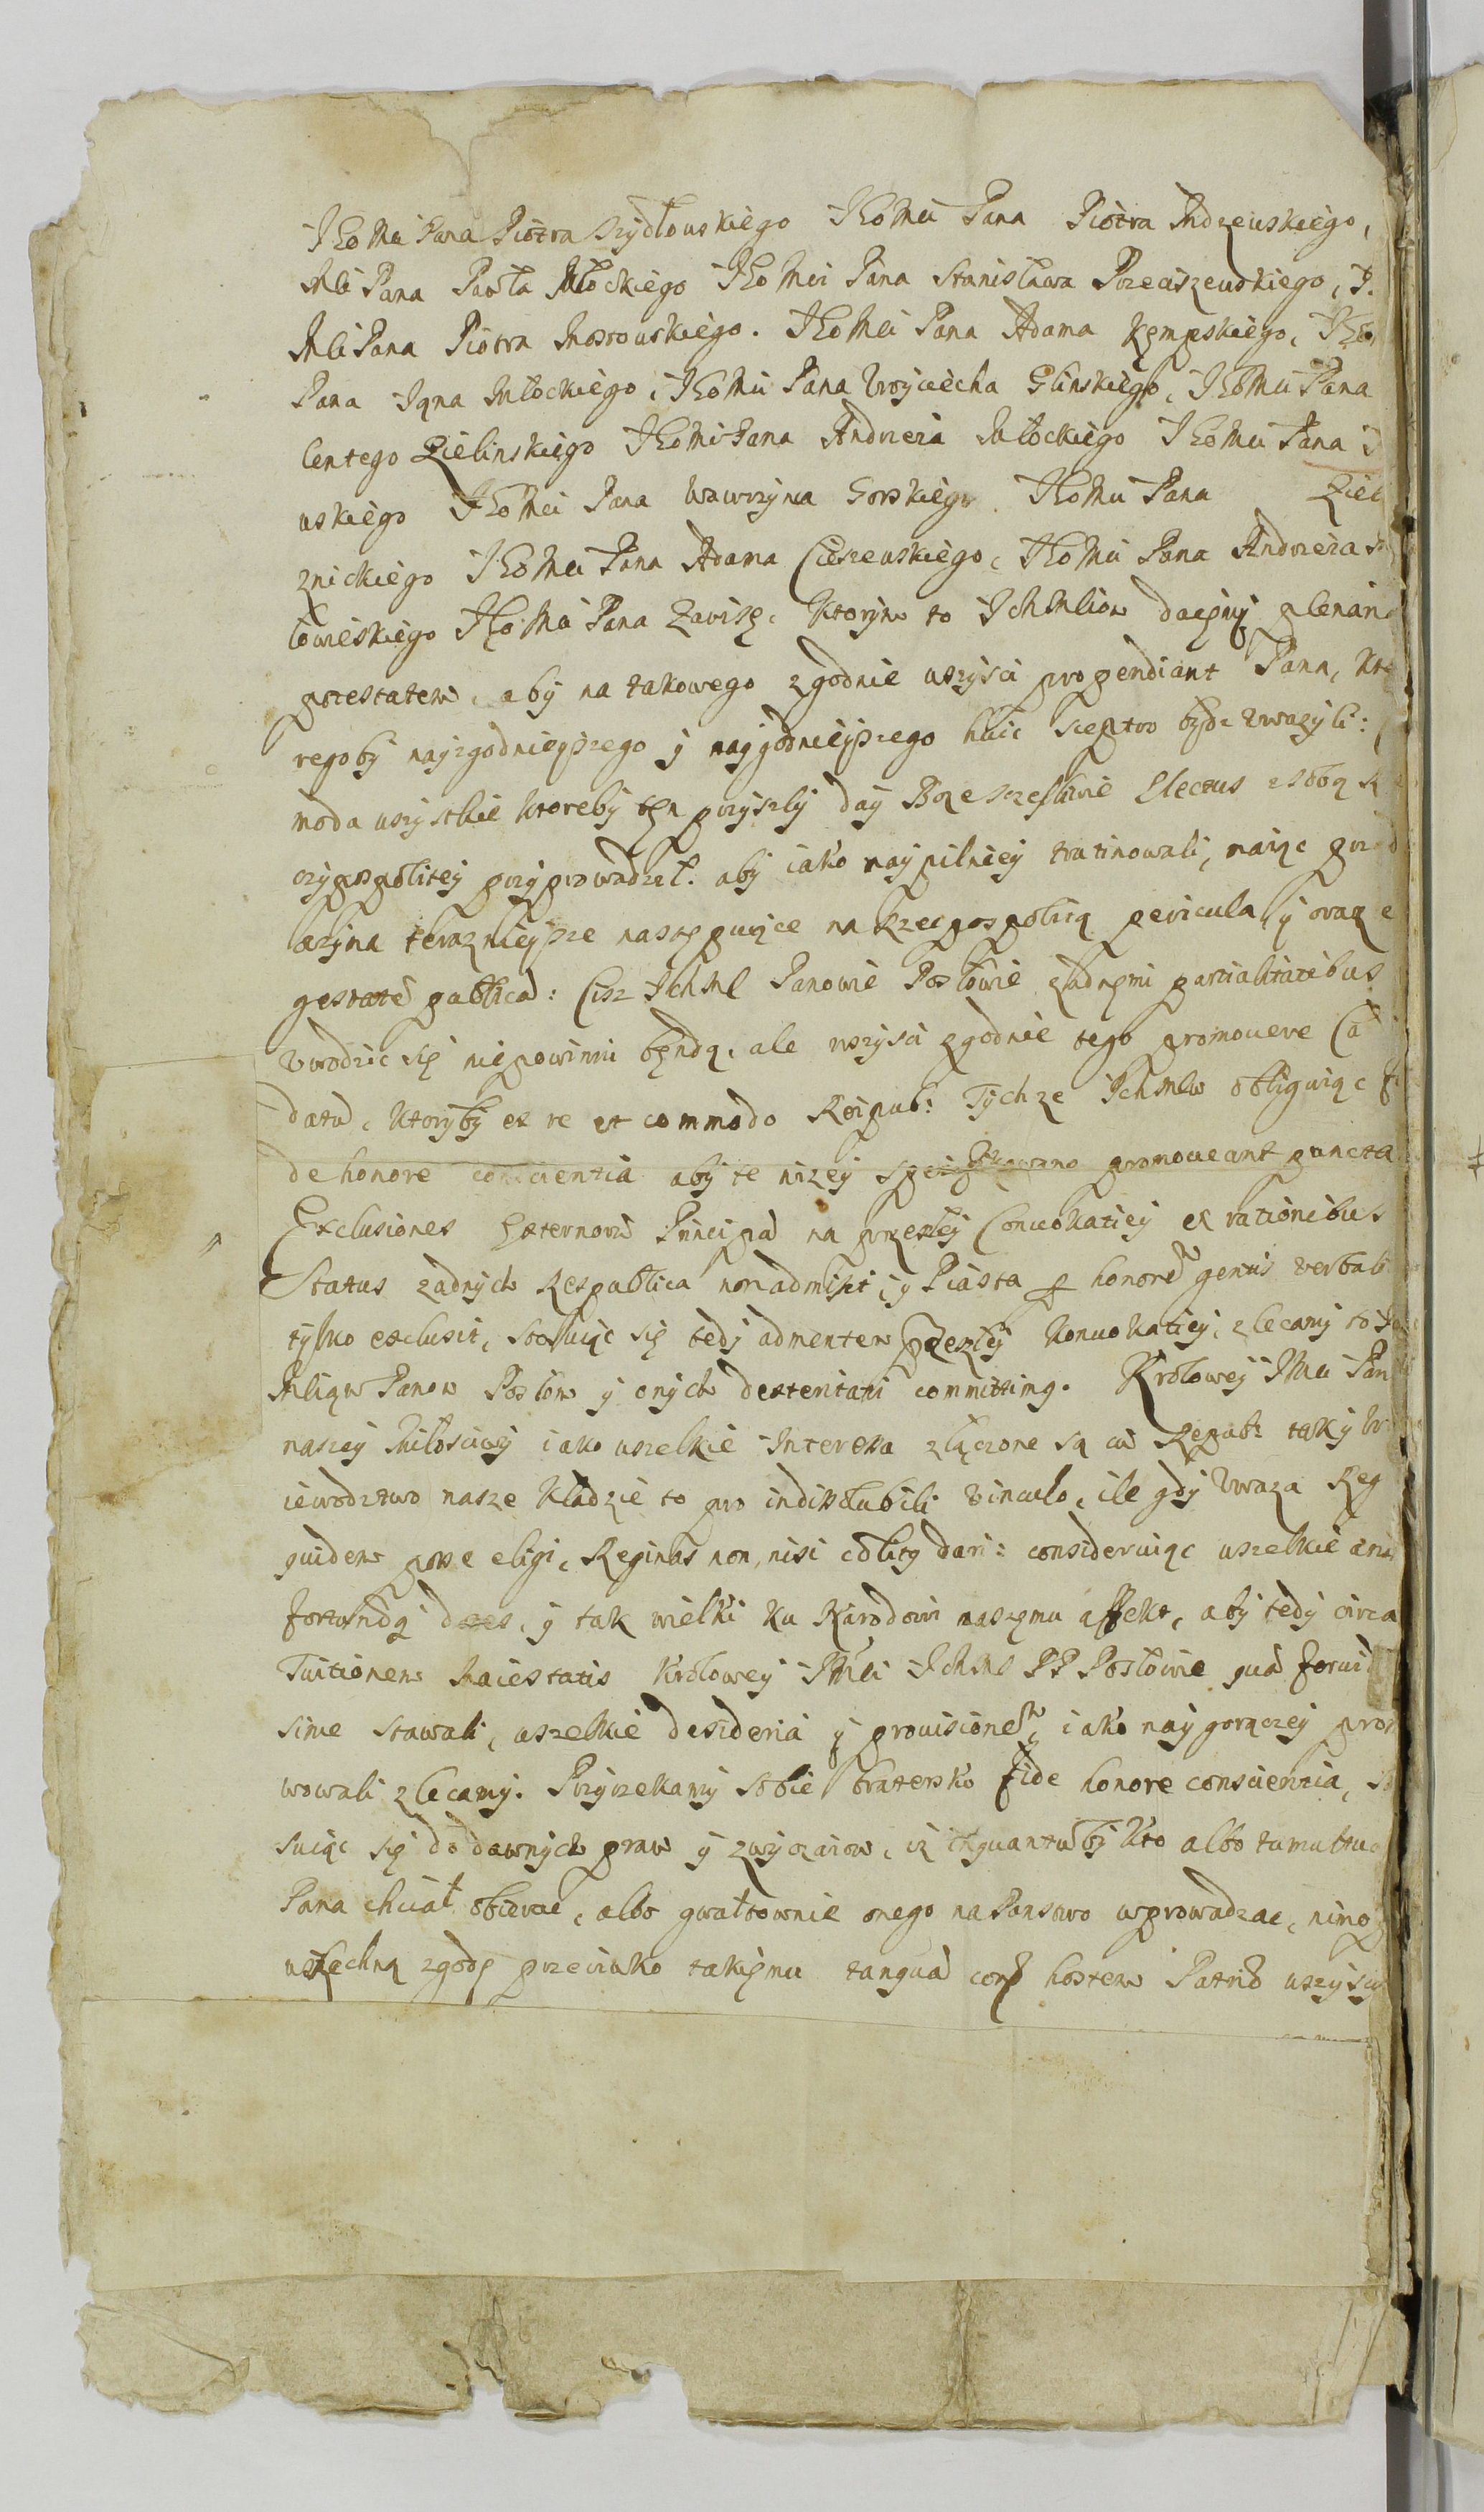 JEo Mci Pana Piotra Szydłouskiego JEo Mci Pana Piotra Mdzeuskiego,
Mci Pana Pawła Młockiego JEo Mci Pana Stanisława Przeciszeuskiego, J.
Mci Pana Piotra Mostouskiego. JEo Mci Pana Adama Kęmpskiego, JEo
Pana Jana Młockiego, JEo Mci Pana Woyciecha Glinskiego, JEo Mci Pana
centego Zielinskiego JEo Mci Pana Andrzeia Młockiego JEo Mci Pana
uskiego JEo Mci Pana Wawrzynca Gorskiego JEo Mci Pana Ziel
znickiego JEo Mci Pana Adama Cieszeuskiego, JEo Mci Pana Andrzeia
łowieskiego JEo Mci Pana Zawiszę, ktorym to Ich Mciom daięmy plenam
potestatem, aby na takowego zgodnie uszysci propendiant Pana, kto
regoby nayzgodnieyszego y naygodnieyszego huic sceptro bydz uwazyli:
moda uszystkie ktoreby tęn przyszły day Boze szczęsliwie Electus z sobą R
czypospolitey przyprowadzeł. aby iako naypilniey trutinowali, maiąc przed
oczyma teraznieysze nastęmpuiące na Rzecpospolitą pericula y oraz e
gestatē publicā: Cisz Ich Mć Panowie Posłowie zadnęmi partialitatibus
uwodzic się niepowinni będą, ale wszysci zgodnie tego promovere Cā
datū, ktoryby ex re et commodo Reipub: Tychze Ich Mciow obliguiąc fi
de honore conscientia aby te nizey promoveant puncta
Exclusiones Externorū Principū na przeszłey Convokatiey ex rationibus
Status zadnych Respublica non admisit, y Piasta honorē gentis verbali
tylko exclusit, stosuiąc się tedy ad mentem przeszłey Konvokatiey, zlecamy to Ich
Mciom Panom Posłom y onych dexteritati committimq. Krolowey JMci Pan
naszey Miłosciwey iako uszelkie Interessa złączone są cū Repub: tak y Wo
iewodztwo nasze kładzie to pro indissolubili vinculo, ile gdy uwaza Reg
quidem posse eligi, Reginas non, nisi cōlitq dari: consideruiąc uszelkie ani
dotes, y tak wielki ku Narodowi naszęmu affekt, aby tedy circa
Tuitionem Maiestatis Krolowey JMci Ich Mć PP Posłowie quā fervid
sime stawali, uszelkie desideria y provisionē iako naygoręcey prom
wowali zlecamy. Przyrzekamy sobie bratersko fide honore conscientia, sto
suiąc się do dawnych praw y zwyczaiow, iz inquantūby kto albo tumultua
Pana chciał obierac, albo gwałtownie onego na Panstwo wprowadzac, mimo p
uszechną zgodę przeciwko takięmu tanquā contra hostem Patriæ uszyscy